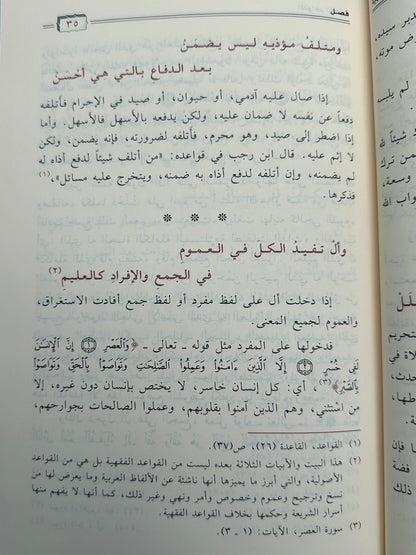 فصل
٣٥
ومتلفُ مؤذيهِ ليس يضمنُ
بعد الدفاع بالتي هي أحسنُ
إذا صال عليه آدمي، أو حيوان، أو صيد في الإحرام فأتلفه
دفعاً عن نفسه لا ضمان عليه، ولكن يدفعه بالأسهل فالأسهل. وأما
إذا اضطر إلى صيد، وهو محرم، فأتلفه لضرورته، فإنه يضمن، ولكن
لا إثم عليه. قال ابن رجب في قواعده: «من أتلف شيئاً لدفع أذاه له
لم يضمنه، وإن أتلفه لدفع أذاه به ضمنه، ويتخرج عليه مسائل»،(١)
فذكرها.
* * *
وألْ تفيدُ الكلَ في العمومِ
في الجمع والإفرادِ كالعليمِ(٢)
إذا دخلت أل على لفظ مفرد أو لفظ جمع أفادت الاستغراق،
والعموم لجميع المعنى.
فدخولها على المفرد مثل قوله ـ تعالى ـ ﴿وَٱلْعَصْرِ ۝١ إِنَّ ٱلْإِنسَٰنَ
لَفِى خُسْرٍ ۝٢ إِلَّا ٱلَّذِينَ ءَامَنُوا۟ وَعَمِلُوا۟ ٱلصَّٰلِحَٰتِ وَتَوَاصَوْا۟ بِٱلْحَقِّ وَتَوَاصَوْا۟
بِٱلصَّبْرِ﴾(٣) أي: كل إنسان خاسر، لا يختص بإنسان دون غيره، إلا
من استثني، وهم الذين آمنوا بقلوبهم، وعملوا الصالحات بجوارحهم،
(١) القواعد، القاعدة (٢٦)، ص(٣٧).
(٢) هذا البيت والأبيات الثلاثة بعده ليست من القواعد الفقهية بل هي من القواعد
الأصولية، والتي أبرز ما يميزها أنها ناشئة عن الألفاظ العربية وما يعرض لها من
نسخ وترجيح وعموم وخصوص وأمر ونهي وغير ذلك، كما أنها لا يفهم منها
أسرار الشريعة وحكمها بخلاف القواعد الفقهية.
(٣) سورة العصر، الآيات: (١ - ٣).